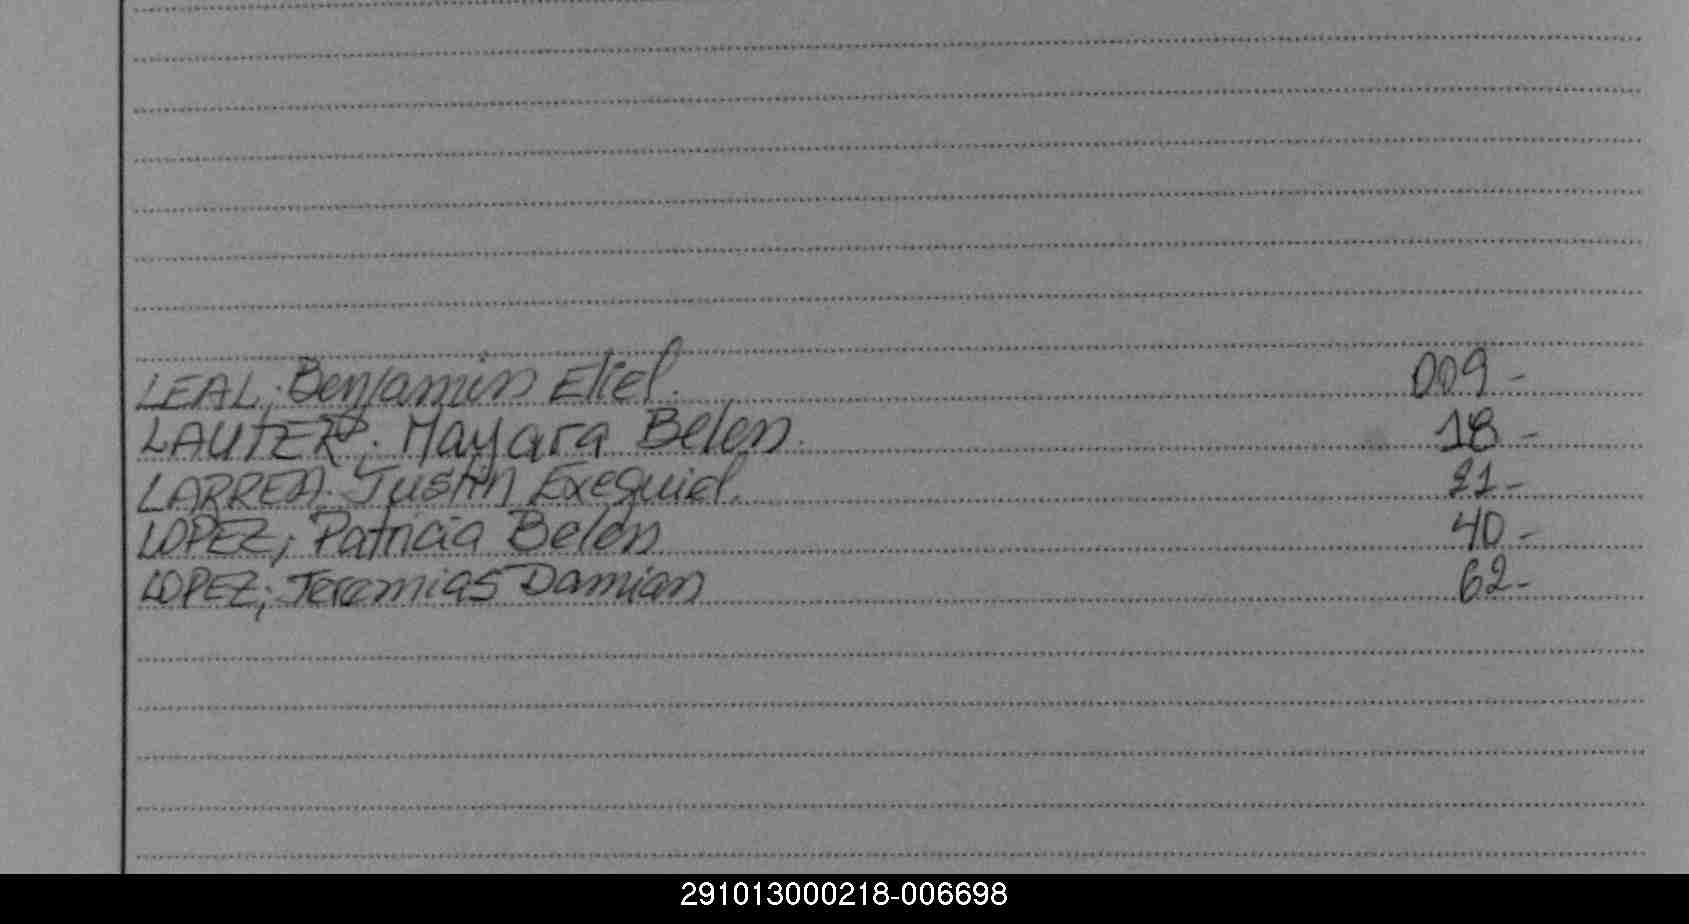 LEAL; Benjamin Eliel. 009-
LAUTERT; Mayara Belen. 18-
LARREA. Justin Exequiel. 21-
LOPEZ; Patricia Belén 40-
LOPEZ; Jeremias Damian 62-
291013000218-006698